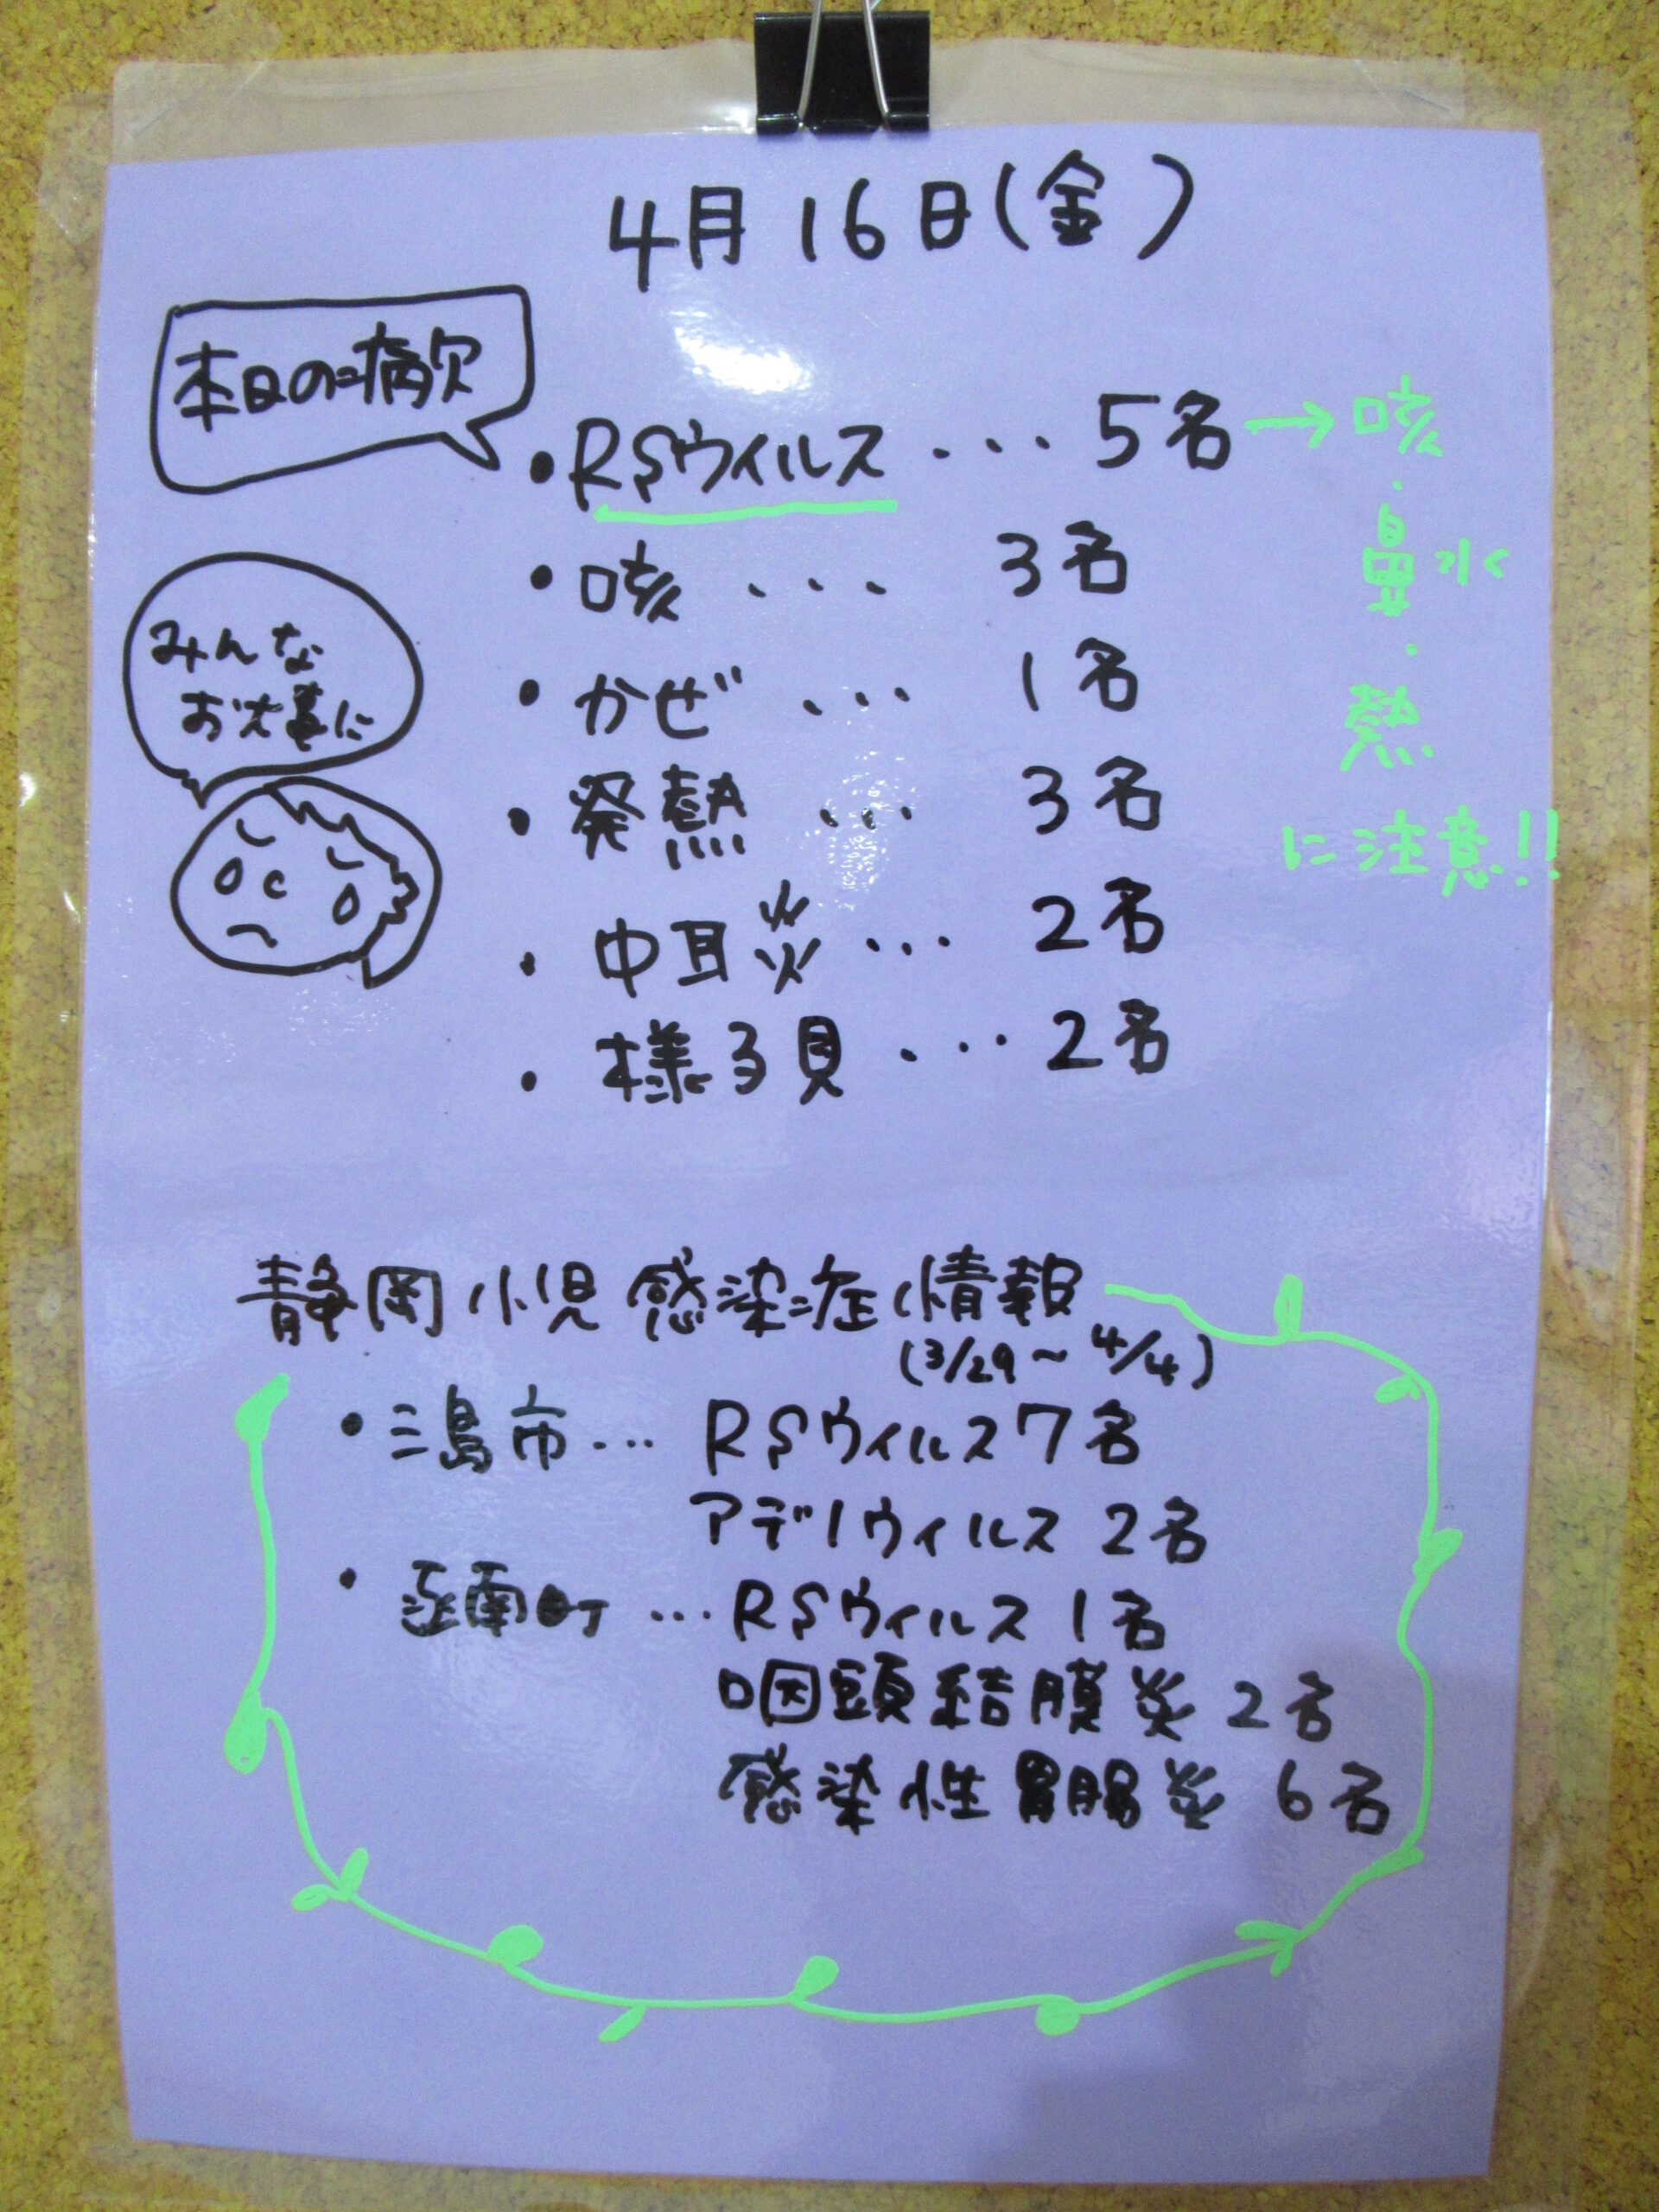 4月16日(金)
本日の病欠
・RSウイルス ... 5名→咳
・
鼻水
・
熱
に注意!!
・咳 ... 3名
・かぜ ... 1名
・発熱 ... 3名
・中耳炎 ... 2名
・様子見 ... 2名
みんな
お大事に
静岡小児感染症情報
(3/29〜4/4)
・三島市... RSウィルス7名
アデノウィルス 2名
・函南町 ...RSウィルス 1名
咽頭結膜炎 2名
感染性胃腸炎 6名